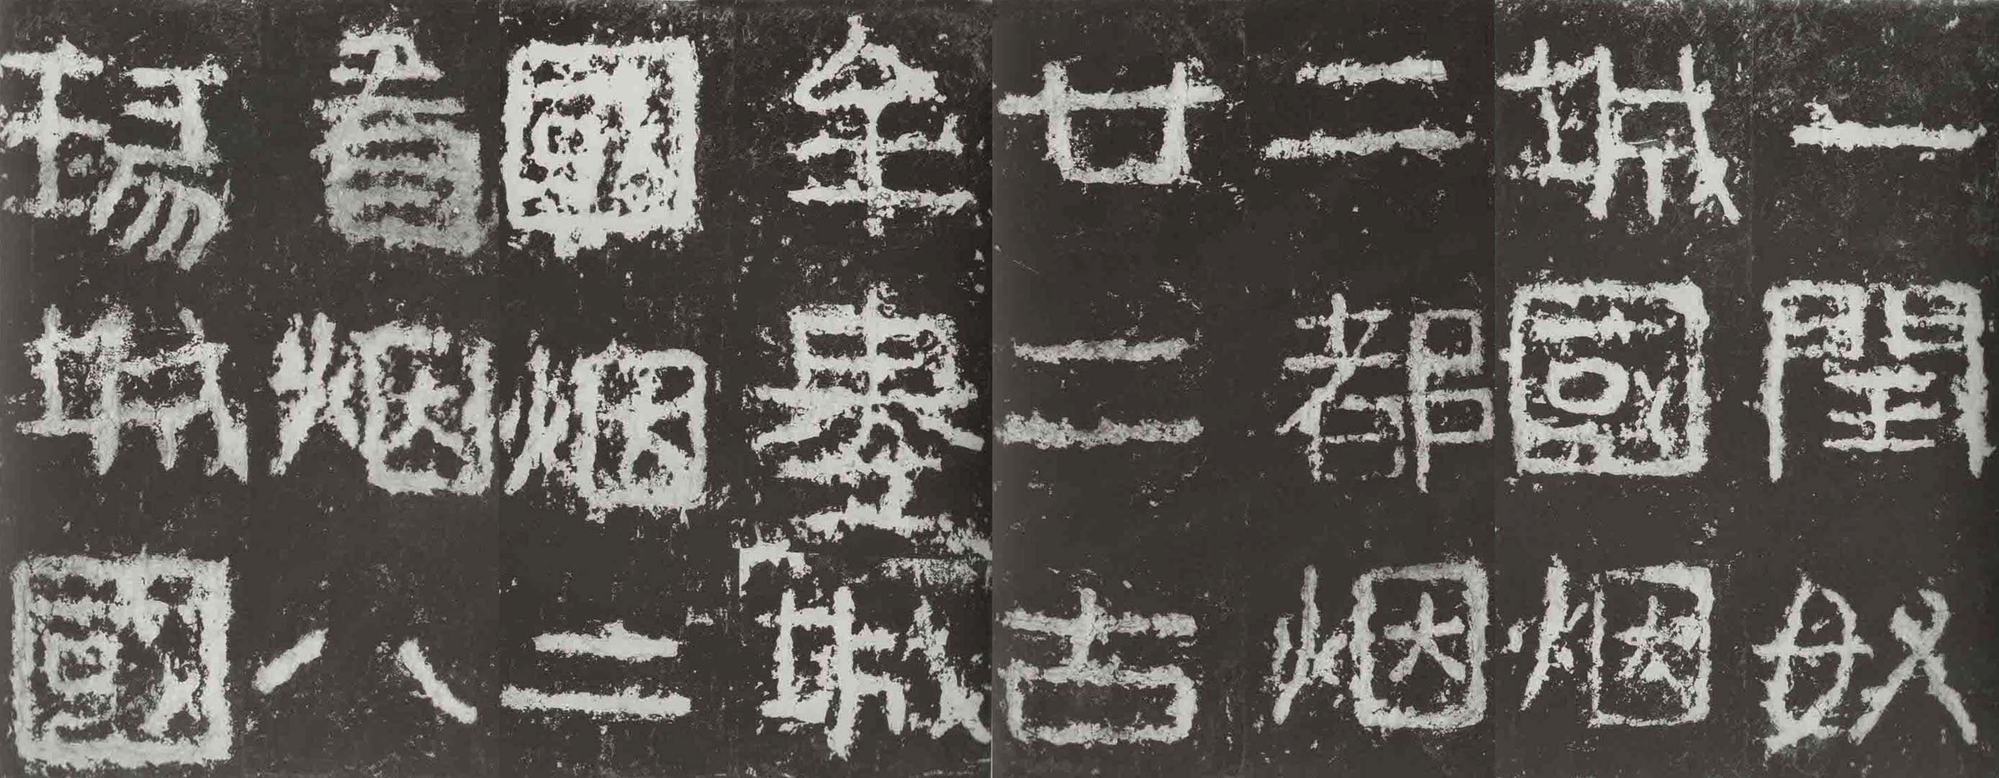 一閏奴
城國烟
二都烟
廿二古
牟婁城
國烟二
看烟八
瑑城國